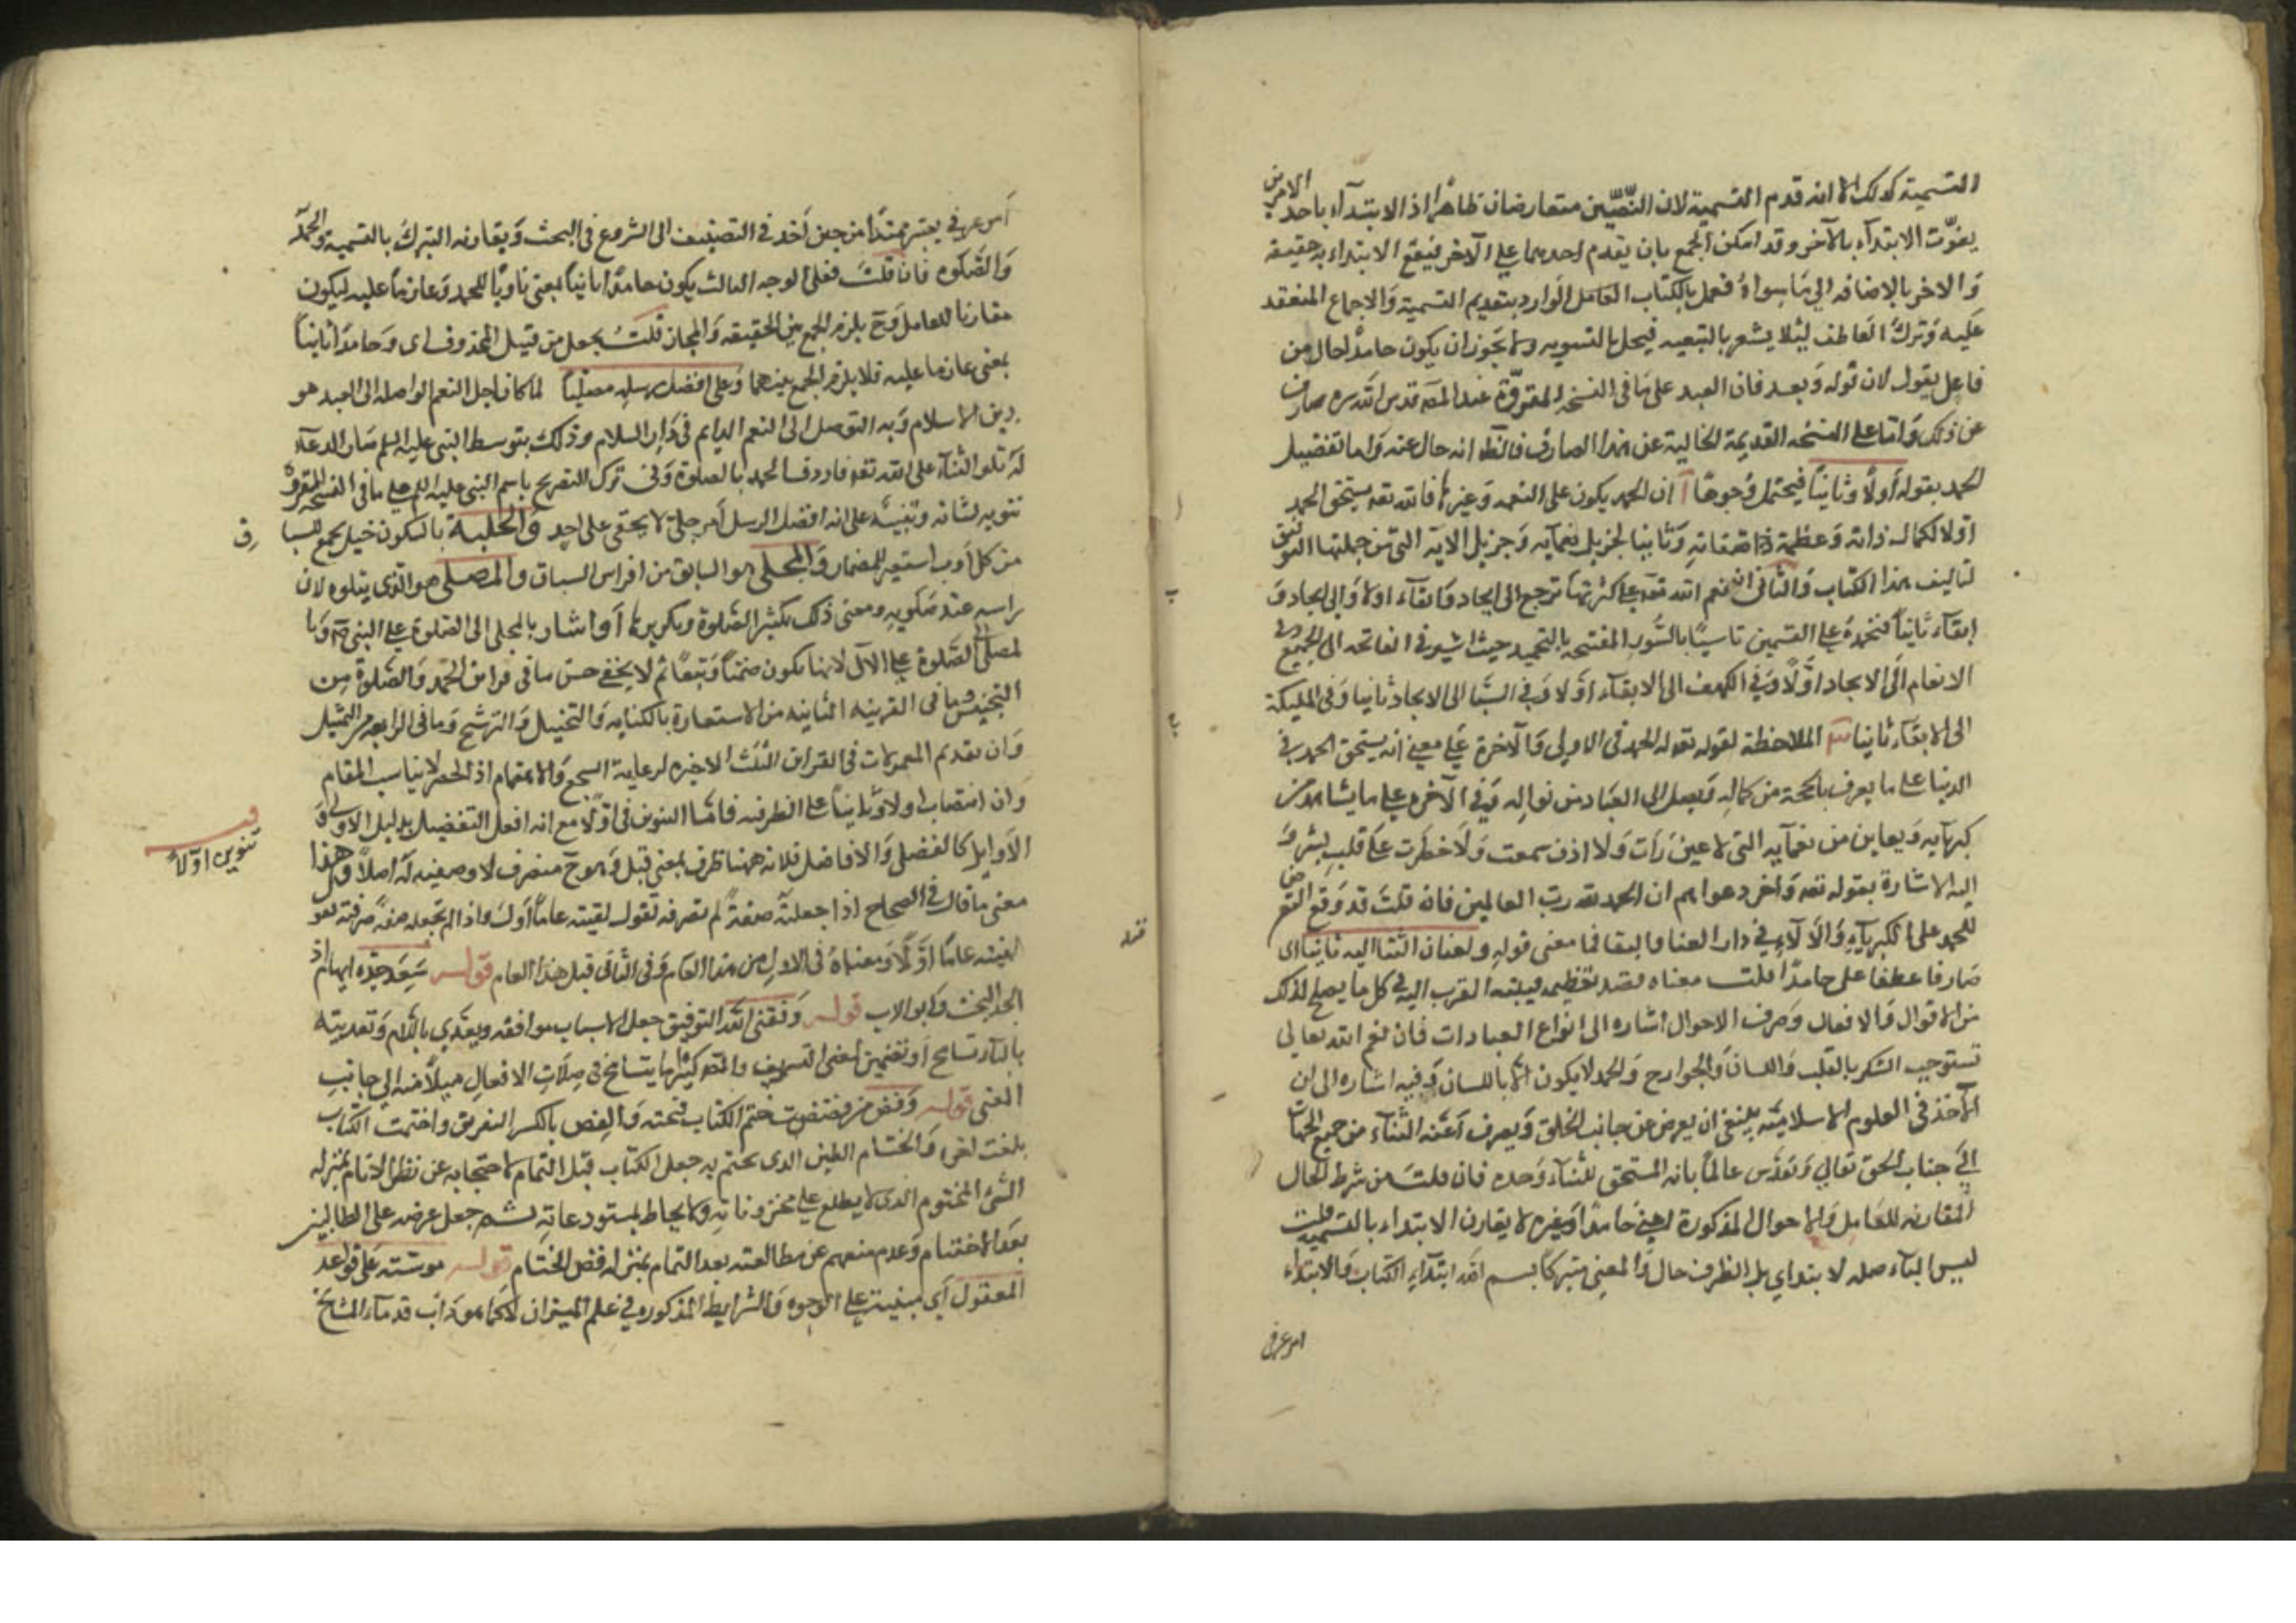 التسمية كذلك الا انه قدم التسمية لان النصّين متعارضان ظاهرا اذ الابتداء باحد الامرين
يفوّت الابتداء بالآخر وقد امكن الجمع بان يقدم احدهما على الآخر فيقع الابتداء به حقيقة
وَالاخر بالاضافه الى مَا سواهُ فعمل بالكتاب العامل الوارد بتقديم التسمية وَالاجماع المنعقد
عَليه وَتركَ العَاطف ليُلا يشعر بالتبعيه فيحل بالتسويه ولا يَجوز ان يكون حامدًا حال من
فاعل يقول لان قوله وَبعد فان العبد على مَا فى النسخه المقروّة عند المصَ قدس الله سره صارف
عن ذلك وَامّا على النسخه القديمة الخالية عن هذا الصارف فالظ انه حال عنه وَاما تفضيل
الحمد بقوله أولًا وثانياً فيحتمل وُجوهًا آ ان الحمد يكون على النعمه وَغيرها فالله تعه يستحق الحمد
اوّلا لكمال ذاته وَعظمة صفاته وَثانيا لجزيل نعمآيه وَجزيل الآيه التى من جملتها التوفيق
لتاليف هذا الكتاب وَالثّانى ان نعم الله تعه على كثرتها ترجع الى ايجاد وَابقآء اولا وَالى ايجاد وَ
ابقآء ثانياً فنحمدهُ على القسمين تاسيًا بالسُّور المفتتحه بالتحميد حيث اشير فى الفاتحه الى الجميع وفى
الانعام الَى الايجاد اوّلًا وَفى الكهف الى الابقآء اوّلا وَفى السّبا الى الايجاد ثانيا وَفى المليكة
الى الابقآء ثانيا الملاحظة لقوله تعه له الحمد فى الاولى وَالآخرة عَلى معنى انه يستحق الحمد فى
الدنيا على ما يعرف بالحجة من كماله وَيصل الى العَباد من نوالِه وَفى الآخره على ما يشاهد من
كبريآيه وَيعاين من نعمآيه التى لا عين رَات وَلا اذن سمعت وَلَا خطرَت عَلى قلب بشر وَ
اليه الاشارة بقوله تعه وَاخر دعواهم ان الحمد لله رب العالمين فان قلتَ قد وَقع التعرض
للحمد على الكبريآءِ وَالآلآءِ فى دار الفنا والبقا فما معنى قوله ولعنان الثنا اليه ثانيا اى
صَارفا عطفا على حامدًا قلت معناه قصد تعظيمه فيبتغه القرب اليه فى كل ما يصلح لذلك
من الاقوال وَالافعال وَصرف الاحوال اشاره الى انواع العبادات فان نعم الله تعالى
تستوجب الشكر بالقلب وَاللسان وَالجوارح وَالحمد لا يكون الا باللسان وَفيه اشاره الى ان
الآخذ فى العلوم الاسلاميّه ينبغى ان يعرض عن جانب الخلق وَيصرف اَعنه الثناء من جميع الجهات
اِلى جناب الحق تعالى وَتقدّس عالماً بانه المستحق للثنآء وَحده فان قلتَ من شرط الحال
المقارنه للعَامل وَالاحوال المذكورة اعنى حامدًا وَغيره لا يقارن الابتداء بالتسمية قلت
ليس البآء صله لابتداى بل الظرف حال وَالمعنى متبركاً بسم الله ابتدآء الكتاب وَالابتدآء
امر عرفى
اَمر عرفى يعتبر ممتدًا من حين اَخذ فى التصنيف الى الشروع فى البحث وَيقارنه التبرك بالتسمية والحمد
وَالصَّلوه فان قلتَ فعلى الوجه الثالث يكون حامدًا ثانيا بمعنى ناويًا للحمد وَعازمًا عليه ليكون
مقارنا للعامل وَح يلزم الجمع بين الحقيقه وَالمجاز قلتُ يجعل من قبيل المحذوف اى وَحامدًا ثانياً
بمعنى عازما عليه فلا يلزم الجمع بينهما وَعلى افضل رسله مصليًا لما كان اجل النعم الواصله الى العبد هو
دين الاسلام وَبه التوصل الى النعم الدايم فى دَار السلام وذلك بتوسط النبى عليه السلم صار الدعآء
لهَ تلو الثنآء على الله تعه فاردف الحمد بالصلوة وَفى ترك التصريح باسم النبى عليه السلم على ما فى النسخه المقروة
تنويه لشانه وتنبيه على انه افضل الرسل اَمر جلىّ لا يخفى على احد وَالحلبة بالسكون خيل يجمع للسباق
من كل اَوب استعير للمضمار وَالمجلى هو السابق من افراس السباق والمصلى هو الذى يتلوه لان
راسه عند صَلويه ومعنى ذلك تكثير الصَّلوة وتكريرها اَو اشار بالمجلى الى الصَّلوة على النبى صَ وَبا
لمصلى الى الصّلوة على الآل لانها يكون ضمنًا وَتبعًا ثم لا يخفى حسن ما فى قراين الحَمد وَالصَّلوة من
التجنيس وما فى القرينه الثانيه من الاستعارة بالكنايه وَالتخييل وَالترشيح وَما فى الرابعه من التمثيل
وَان تقديم المعمولات فى القراين الثلث الاخيره لرعاية السجع وَالاهتمام اذ الحصر لا يناسب المقام
وَان انتصاب اولا وَثانياً على الظرفيه فامّا التنوين فى اوّلًا مع انه افعل التفضيل بدليل الاولى وَ
تنوين اوّلًا
الاَوايل كالفضلى وَالافاضل فلانه ههنا ظرف بمعنى قبل وَهو ح منصرف لا وصفيه لَه اصلًا وَهذا
معنى ما قال فى الصحاح اذا جعلته صفةً لم تصرفه تقول لقيته عاماً اَوّلَ وَاذا لم تجعله صفه صرفته تقول
لقيته عامًا اَوّلًا وَمعناهُ فى الاول من هذا العَام وَفى الثّانى قبل هذا العام قولــه سَعِدَ جَدّه ايهام اذ
الجد البخت وَابو الاب قولــه وَفّقنى الله التوفيق جعل الاسباب موافقه ويعدّى باللام وَتعديته
بالبآء تسامح اَو تضمين لمعنى التشريف والمصَ كثيرًا ما يتسامح فى صِلَات الافعال ميلًا منه الى جانب
المعنى قولــه وَفض من فضضت ختم الكتاب فتحته وَالفض بالكسر التفريق واختمت الكتاب
بلغت اخره وَالختام الطين الذى يختم به جعل الكتاب قبل التمام لاحتجابه عن نظر الانام بمنزله
الشئ المختوم الذى لا يطلع على مخزوناته وَلا يحاط بمستودعاته ثــم جعل عرضه على الطالبين
بعَد الاختتام وَعدم منعهم عن مطالعته بعد التمام بمنزله فض الختام قولــه موسّسه عَلى قواعد
المعقول اَى مبنيه على الوجوه وَالشرايط المذكوره فى علم الميزان لَا كما هو دَاب قدمآء المشايخ